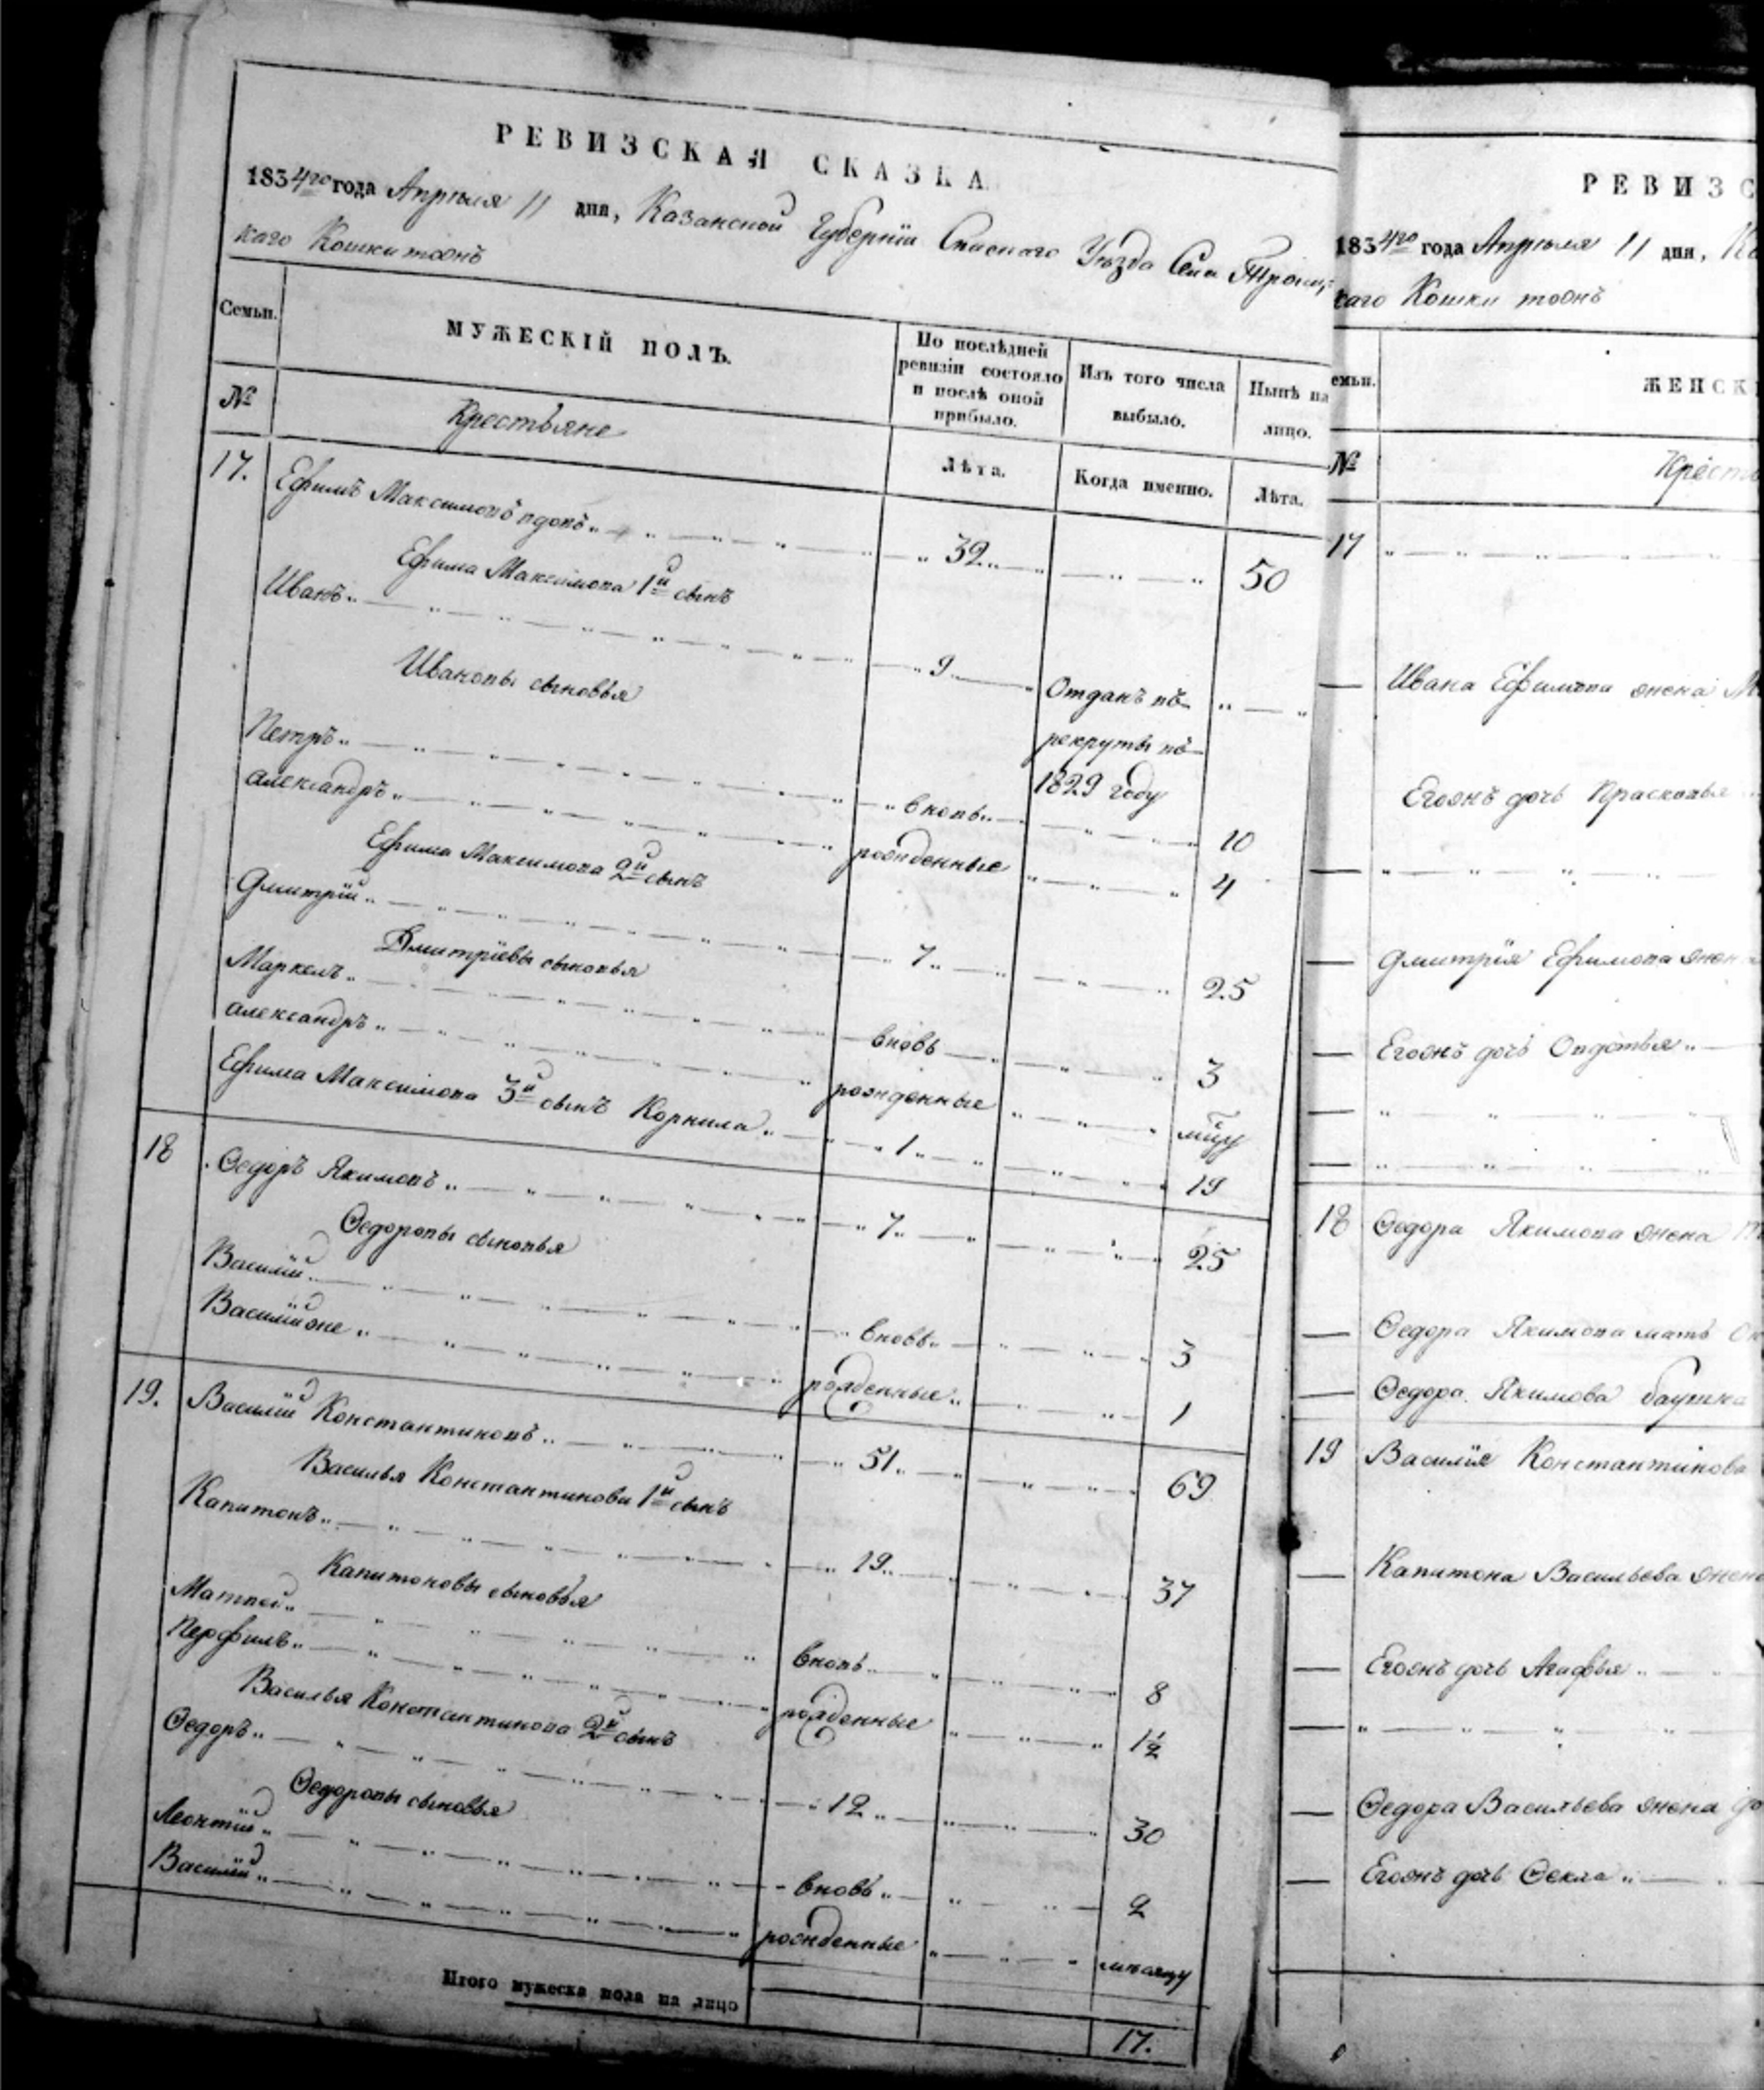 РЕВИЗСКАЯ СКАЗКА
1834го года Апрѣля 11 дня, Казанской Губерніи Спаскаго Уѣзда Села Троиц-
каго Кошки тожъ
Семьи. МУЖЕСКІЙ ПОЛЪ. По послѣдней ревизіи состояло и послѣ оной прибыло. Изъ того числа выбыло. Нынѣ на лицо.
№ Крестьяне Лѣта. Когда именно. Лѣта.
17. Ефимъ Максимовъ вдовъ 32 50
Ефима Максимова 1й сынъ
Иванъ 9 Отданъ въ рекруты въ 1829 году
Ивановы сыновья
Петръ вновь 10
александръ рожденные 4
Ефима Максимова 2й сынъ
Дмитрій 7 25
Дмитріевы сыновья
Маркелъ вновь 3
александръ рожденные мцу
Ефима Максимова 3й сынъ Корнила 1 19
18 Ѳедоръ Якимовъ 7 25
Ѳедоровы сыновья
Василій вновь 3
Василійже рожденные 1
19. Василій Константиновъ 51 69
Василья Константинова 1й сынъ
Капитонъ 19 37
Капитоновы сыновья
Матвей вновь 8
Перфилъ рожденные 1½
Василья Константинова 2й сынъ
Ѳедоръ 12 30
Ѳедоровы сыновья
Леонтій вновь 2
Василій рожденные мѣсяцу
Итого мужеска пола на лицо 17.
РЕВИЗС
1834го года Апрѣля 11 дня, Ка
каго Кошки тожъ
емьи. ЖЕНСК
№ Кресть
17
Ивана Ефимова жена М
Егожъ дочь Прасковья
Дмитрія Ефимова жена
Егожъ дочь Авдотья
18 Ѳедора Якимова жена
Ѳедора Якимова мать
Ѳедора Якимова баушка
19 Василія Константинова
Капитона Васильева жена
Егожъ дочь Агафья
Ѳедора Васильева жена
Егожъ дочь Ѳекла